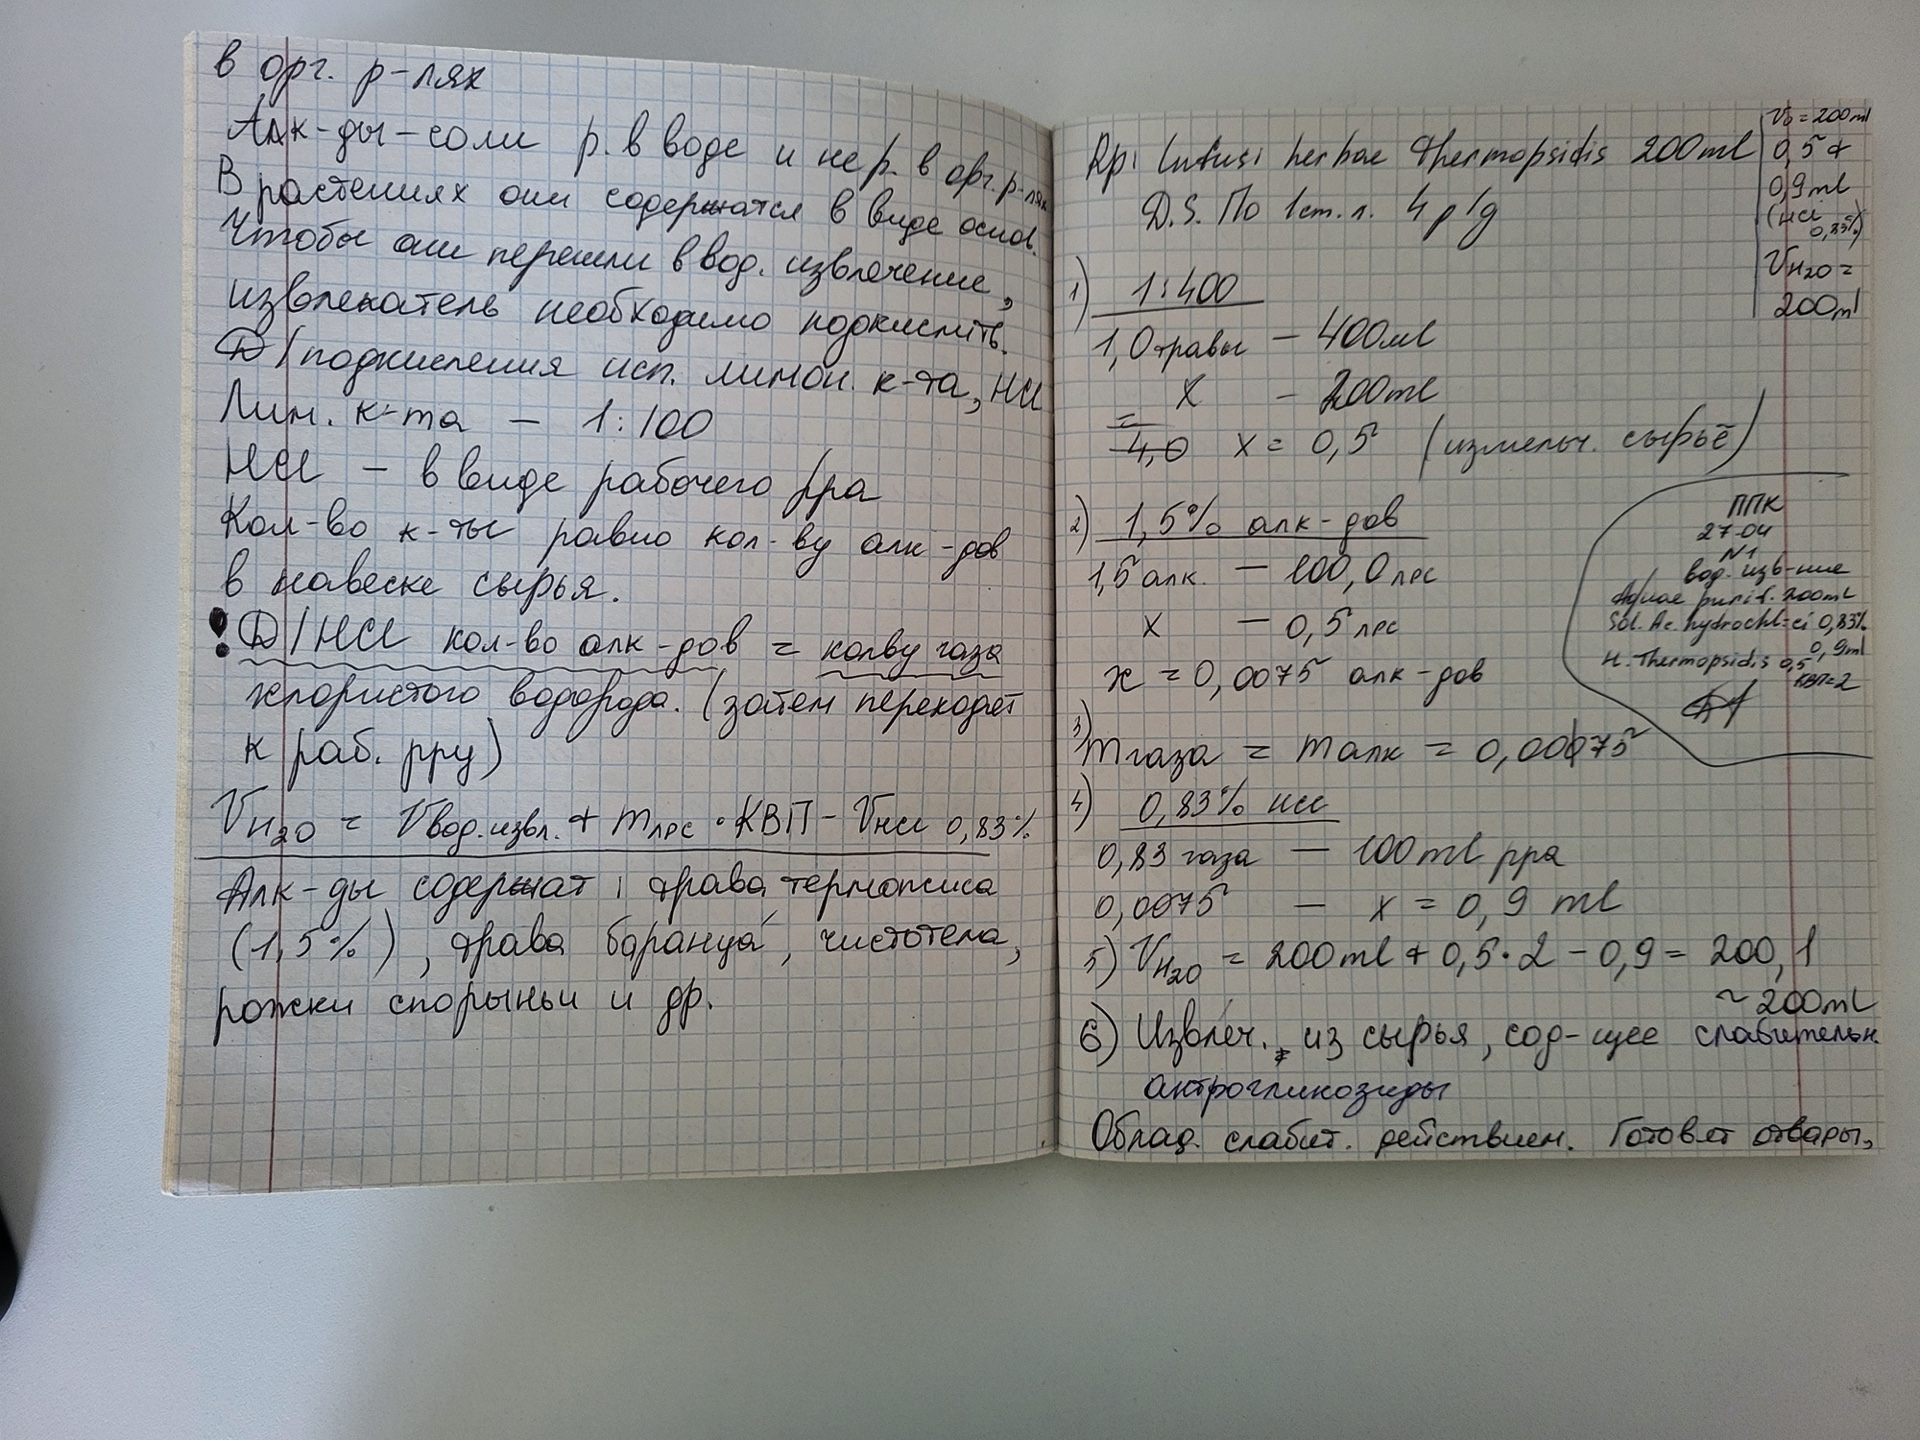 в орг. р-лях
Алк-ды-соли р. в воде и не р. в орг. р-лях
В растениях они содержатся в виде основ.
Чтобы они перешли в вод. извлечение,
извлекатель необходимо подкислить.
Д/подкисления исп. лимон. к-та, HCl
Лим. к-та - 1:100
HCl - в виде рабочего рра
Кол-во к-ты равно кол-ву алк-дов
в навеске сырья.
! Д/HCl кол-во алк-дов = колву газа
хлористого водорода. (затем переходят
к раб. рру)
VH2O = Vвод.извл. + mлрс · КВП - VHCl 0,83%
Алк-ды содержат: трава термопсиса
(1,5%), трава баранца, чистотела,
рожки спорыньи и др.
Rp: Infusi herbae Thermopsidis 200ml
D.S. По 1ст.л. 4 р/д
V0 = 200ml
0,5 +
0,9ml
(HCl
0,83%)
VH2O =
200ml
1) 1:400
1,0 травы - 400ml
X - 200ml
=
4,0 x = 0,5 (измельч. сырьё)
2) 1,5% алк-дов
1,5 алк. - 100,0 лрс
x - 0,5 лрс
x = 0,0075 алк-дов
ППК
27-04
N1
вод. изв-ние
Aquae purif. 200ml
Sol. Ac. hydrochl-ci 0,83%
0,9ml
H. Thermopsidis 0,5
КВП=2
3) mгаза = mалк = 0,0075
4) 0,83% HCl
0,83 газа - 100ml рра
0,0075 - x = 0,9 ml
5) VH2O = 200ml + 0,5·2 - 0,9 = 200,1
~ 200ml
6) Извлеч. из сырья, сод-щее слабительн.
антрогликозиды
Облад. слабит. действием. Готовят отвары,